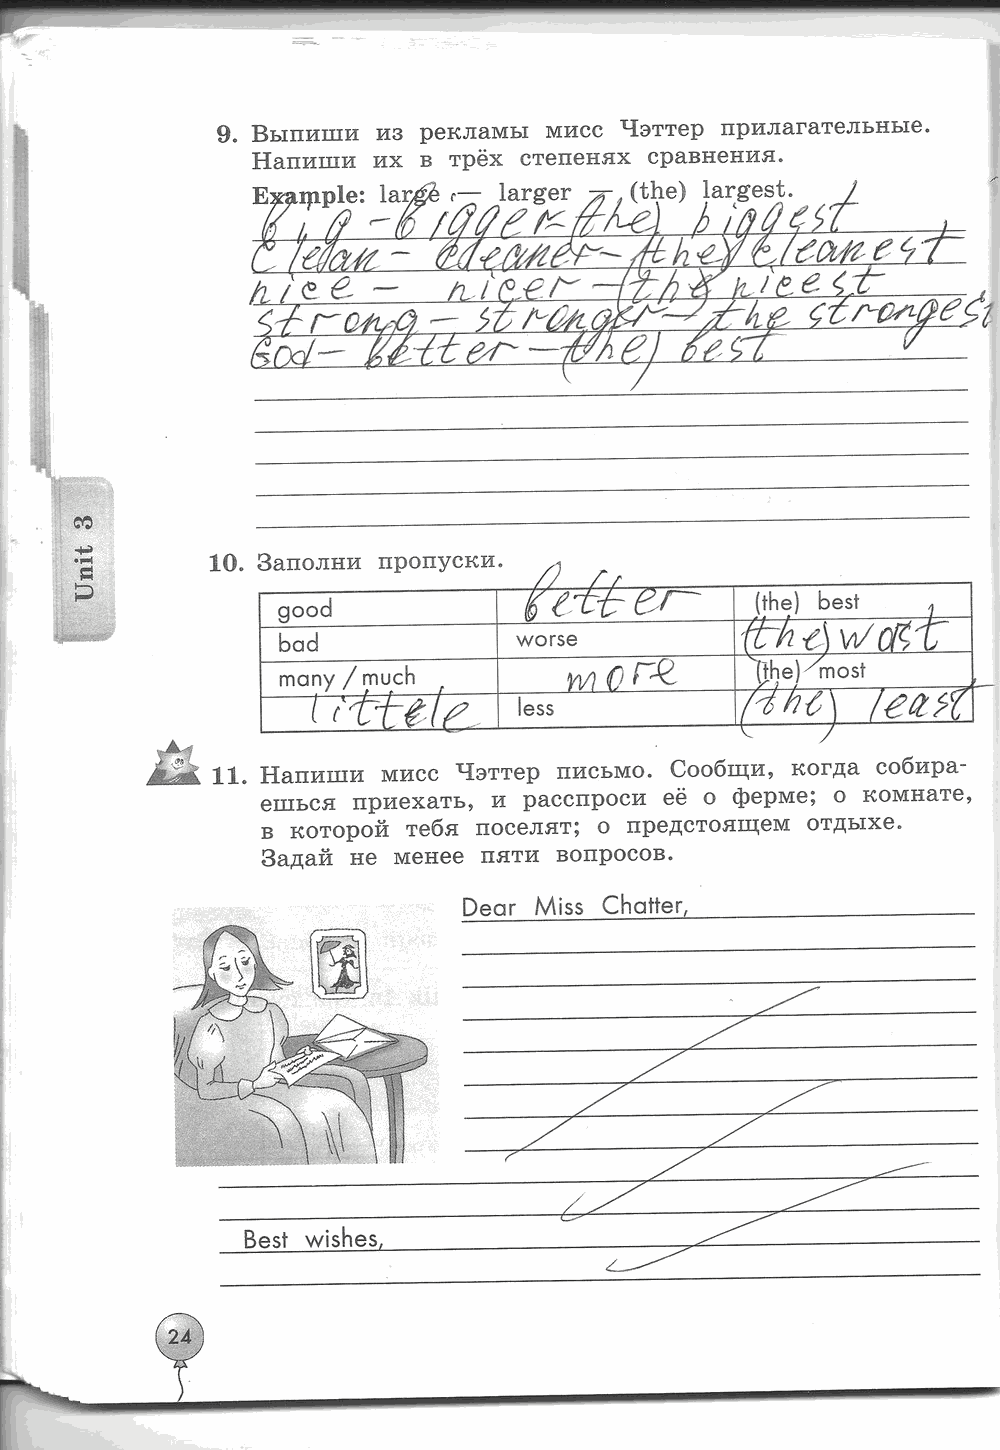 9. Выпиши из рекламы мисс Чэттер прилагательные.
Напиши их в трёх степенях сравнения.
Example: large — larger — (the) largest.
big - bigger - (the) biggest
clean - cleaner - (the) cleanest
nice - nicer - (the) niceest
strong - stronger - the strongest
God - better - (the) best
Unit 3
10. Заполни пропуски.
good better (the) best
bad worse (the) worst
many / much more (the) most
little less (the) least
11. Напиши мисс Чэттер письмо. Сообщи, когда собира-
ешься приехать, и расспроси её о ферме; о комнате,
в которой тебя поселят; о предстоящем отдыхе.
Задай не менее пяти вопросов.
Dear Miss Chatter,
Best wishes,
24